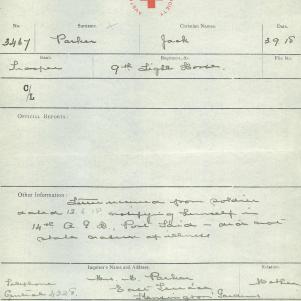 No. Surname. Christian Names. Date.
3467 Parker Jack 3.9.15
Rank. Regiment, &c. File No.
Trooper 9th Light Horse.
C/L
OFFICIAL REPORTS:
Other Information: Letter received from soldier
dated notifying himself in
14th A G H, Port Said - did not
state nature of illness
Inquirer's Name and Address. Relation.
Mrs. Parker Mother
Telephone East Terrace,
Central 4328. Kensington Gardens